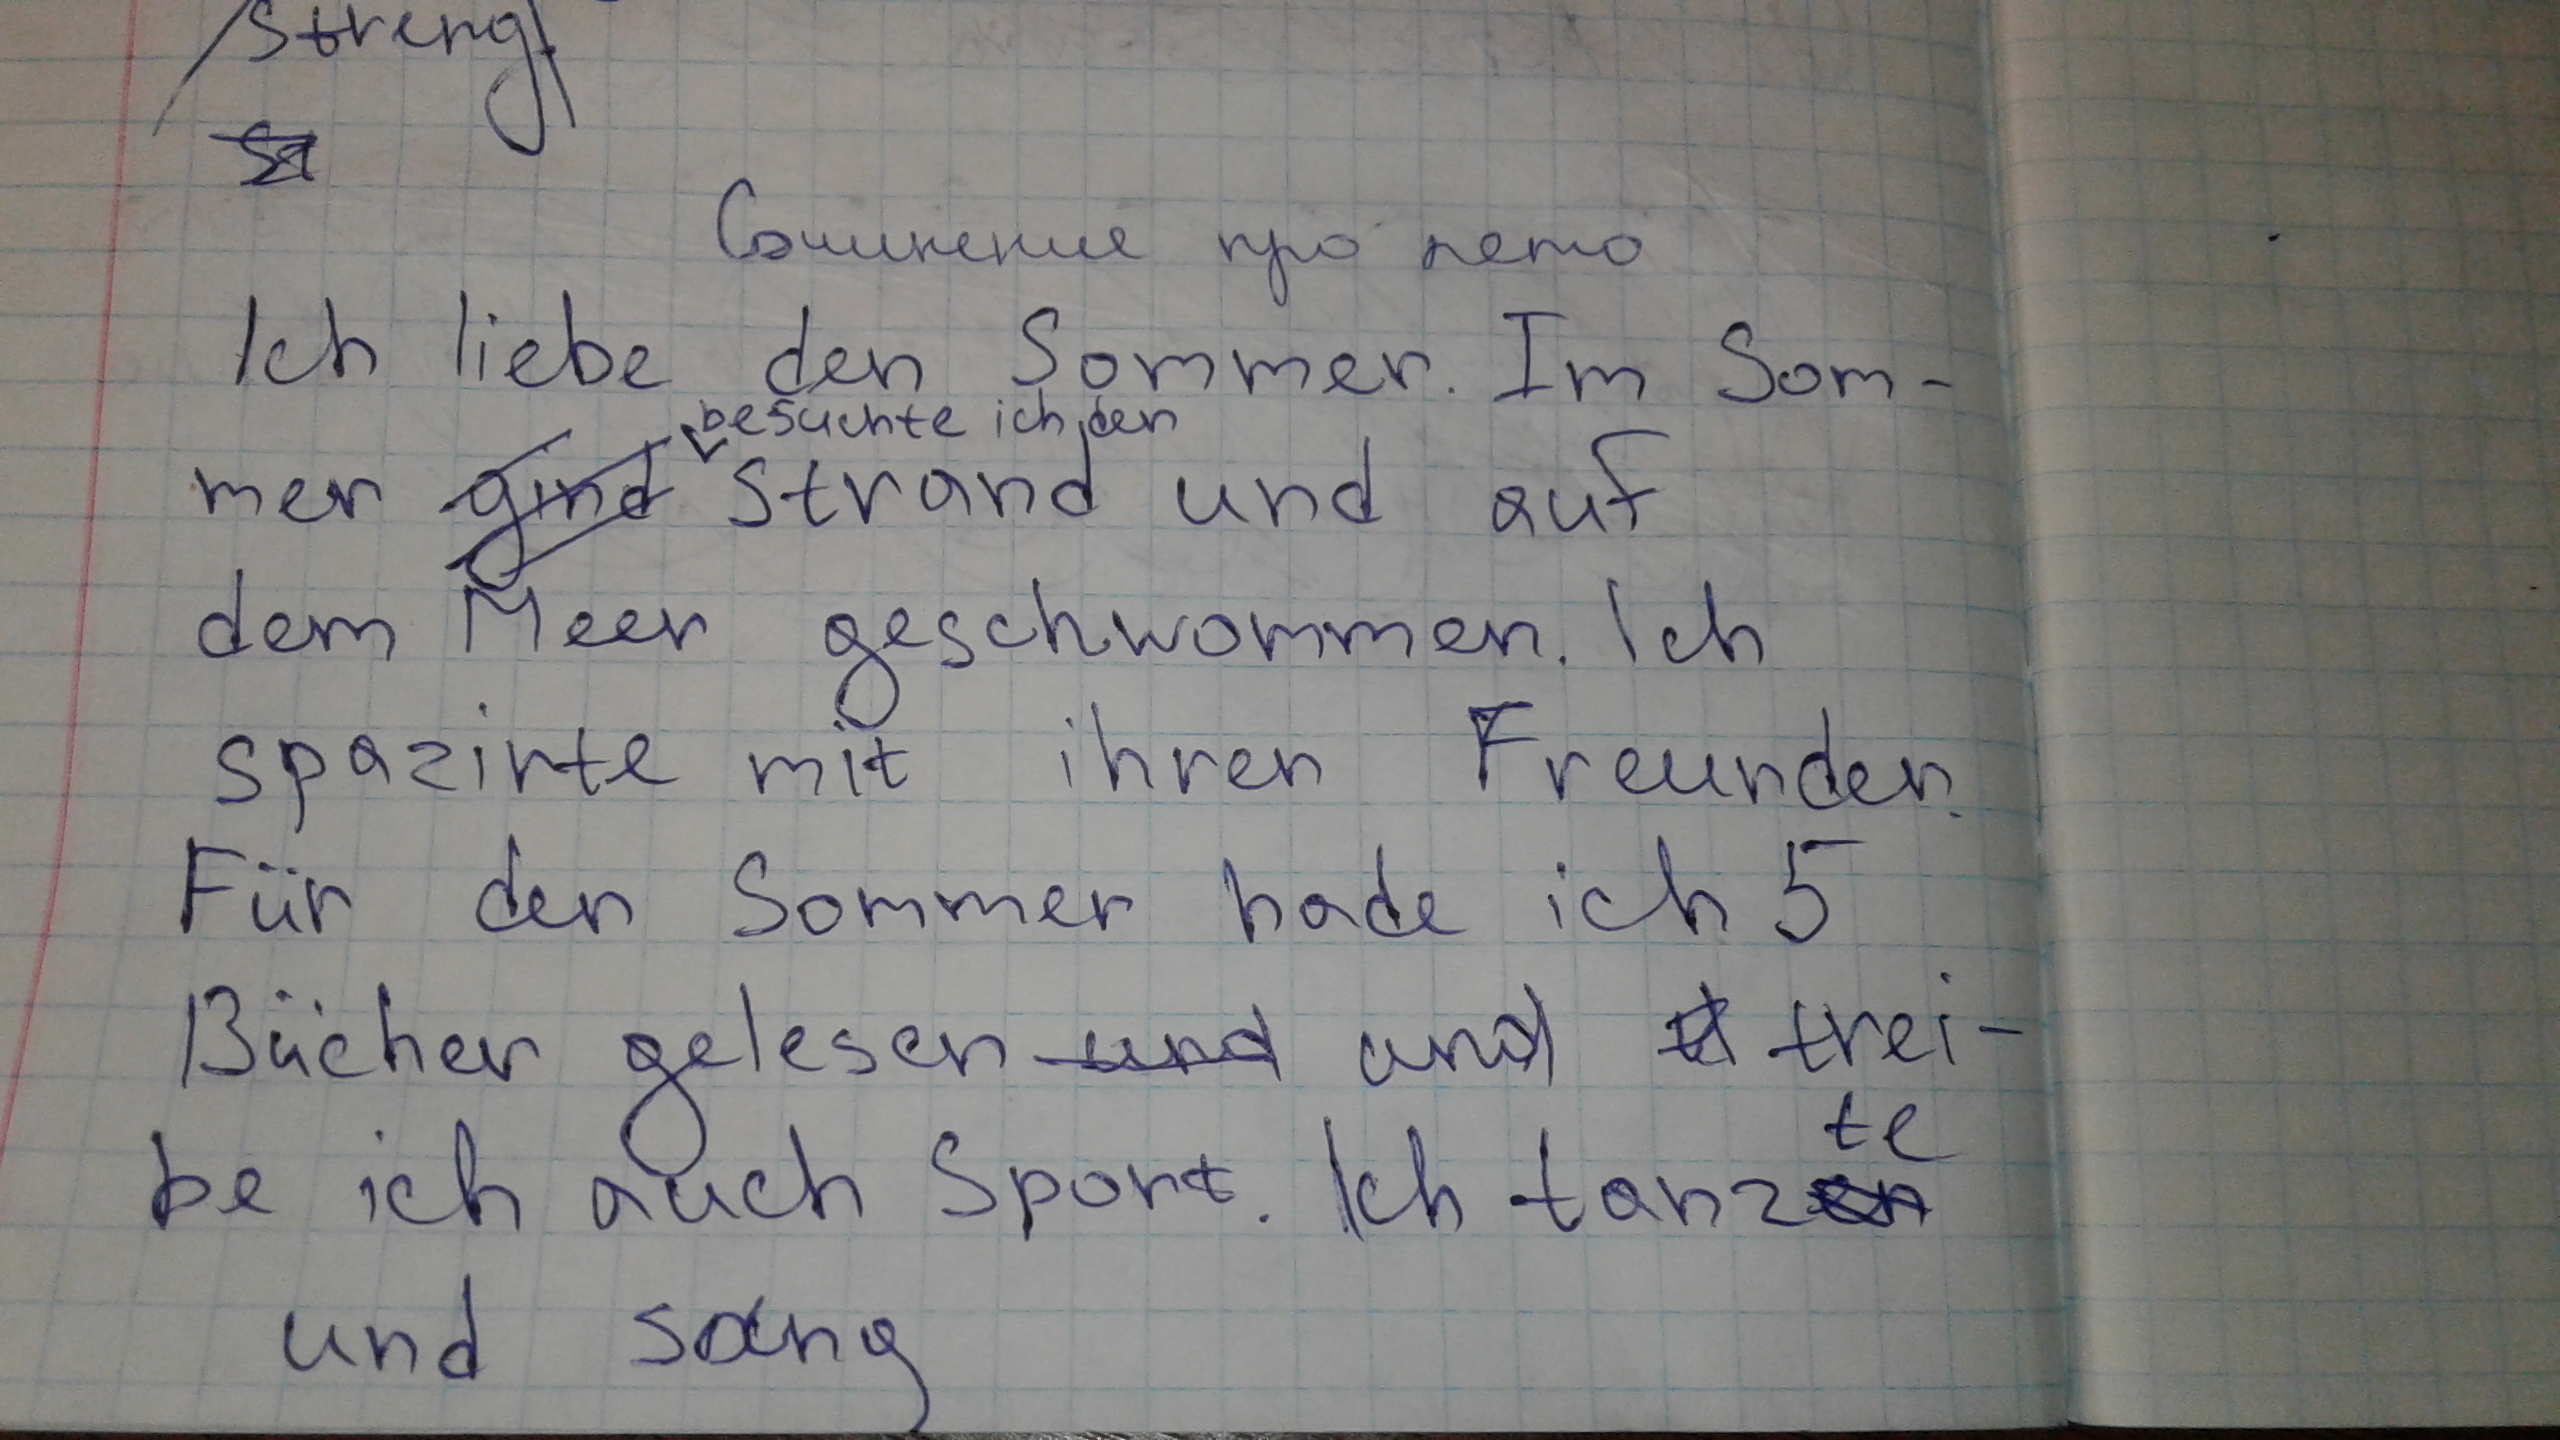 streng
Сочинение про лето
Ich liebe den Sommer. Im Som-
besuchte ich den
mer gind Strand und auf
dem Meer geschwommen. Ich
spazirte mit ihren Freunden.
Für den Sommer hade ich 5
Bücher gelesen und und trei-
te
be ich auch Sport. Ich tanzen
und sang